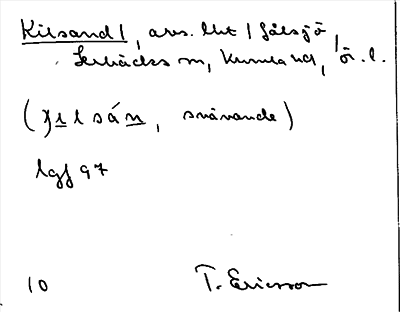 Kilsand 1, avs. lht 1 Gålsjö,
Lerbäcks sn, Kumla hd, ör. l.
(xilsán, svävande)
lgf 97
10 T. Ericsson